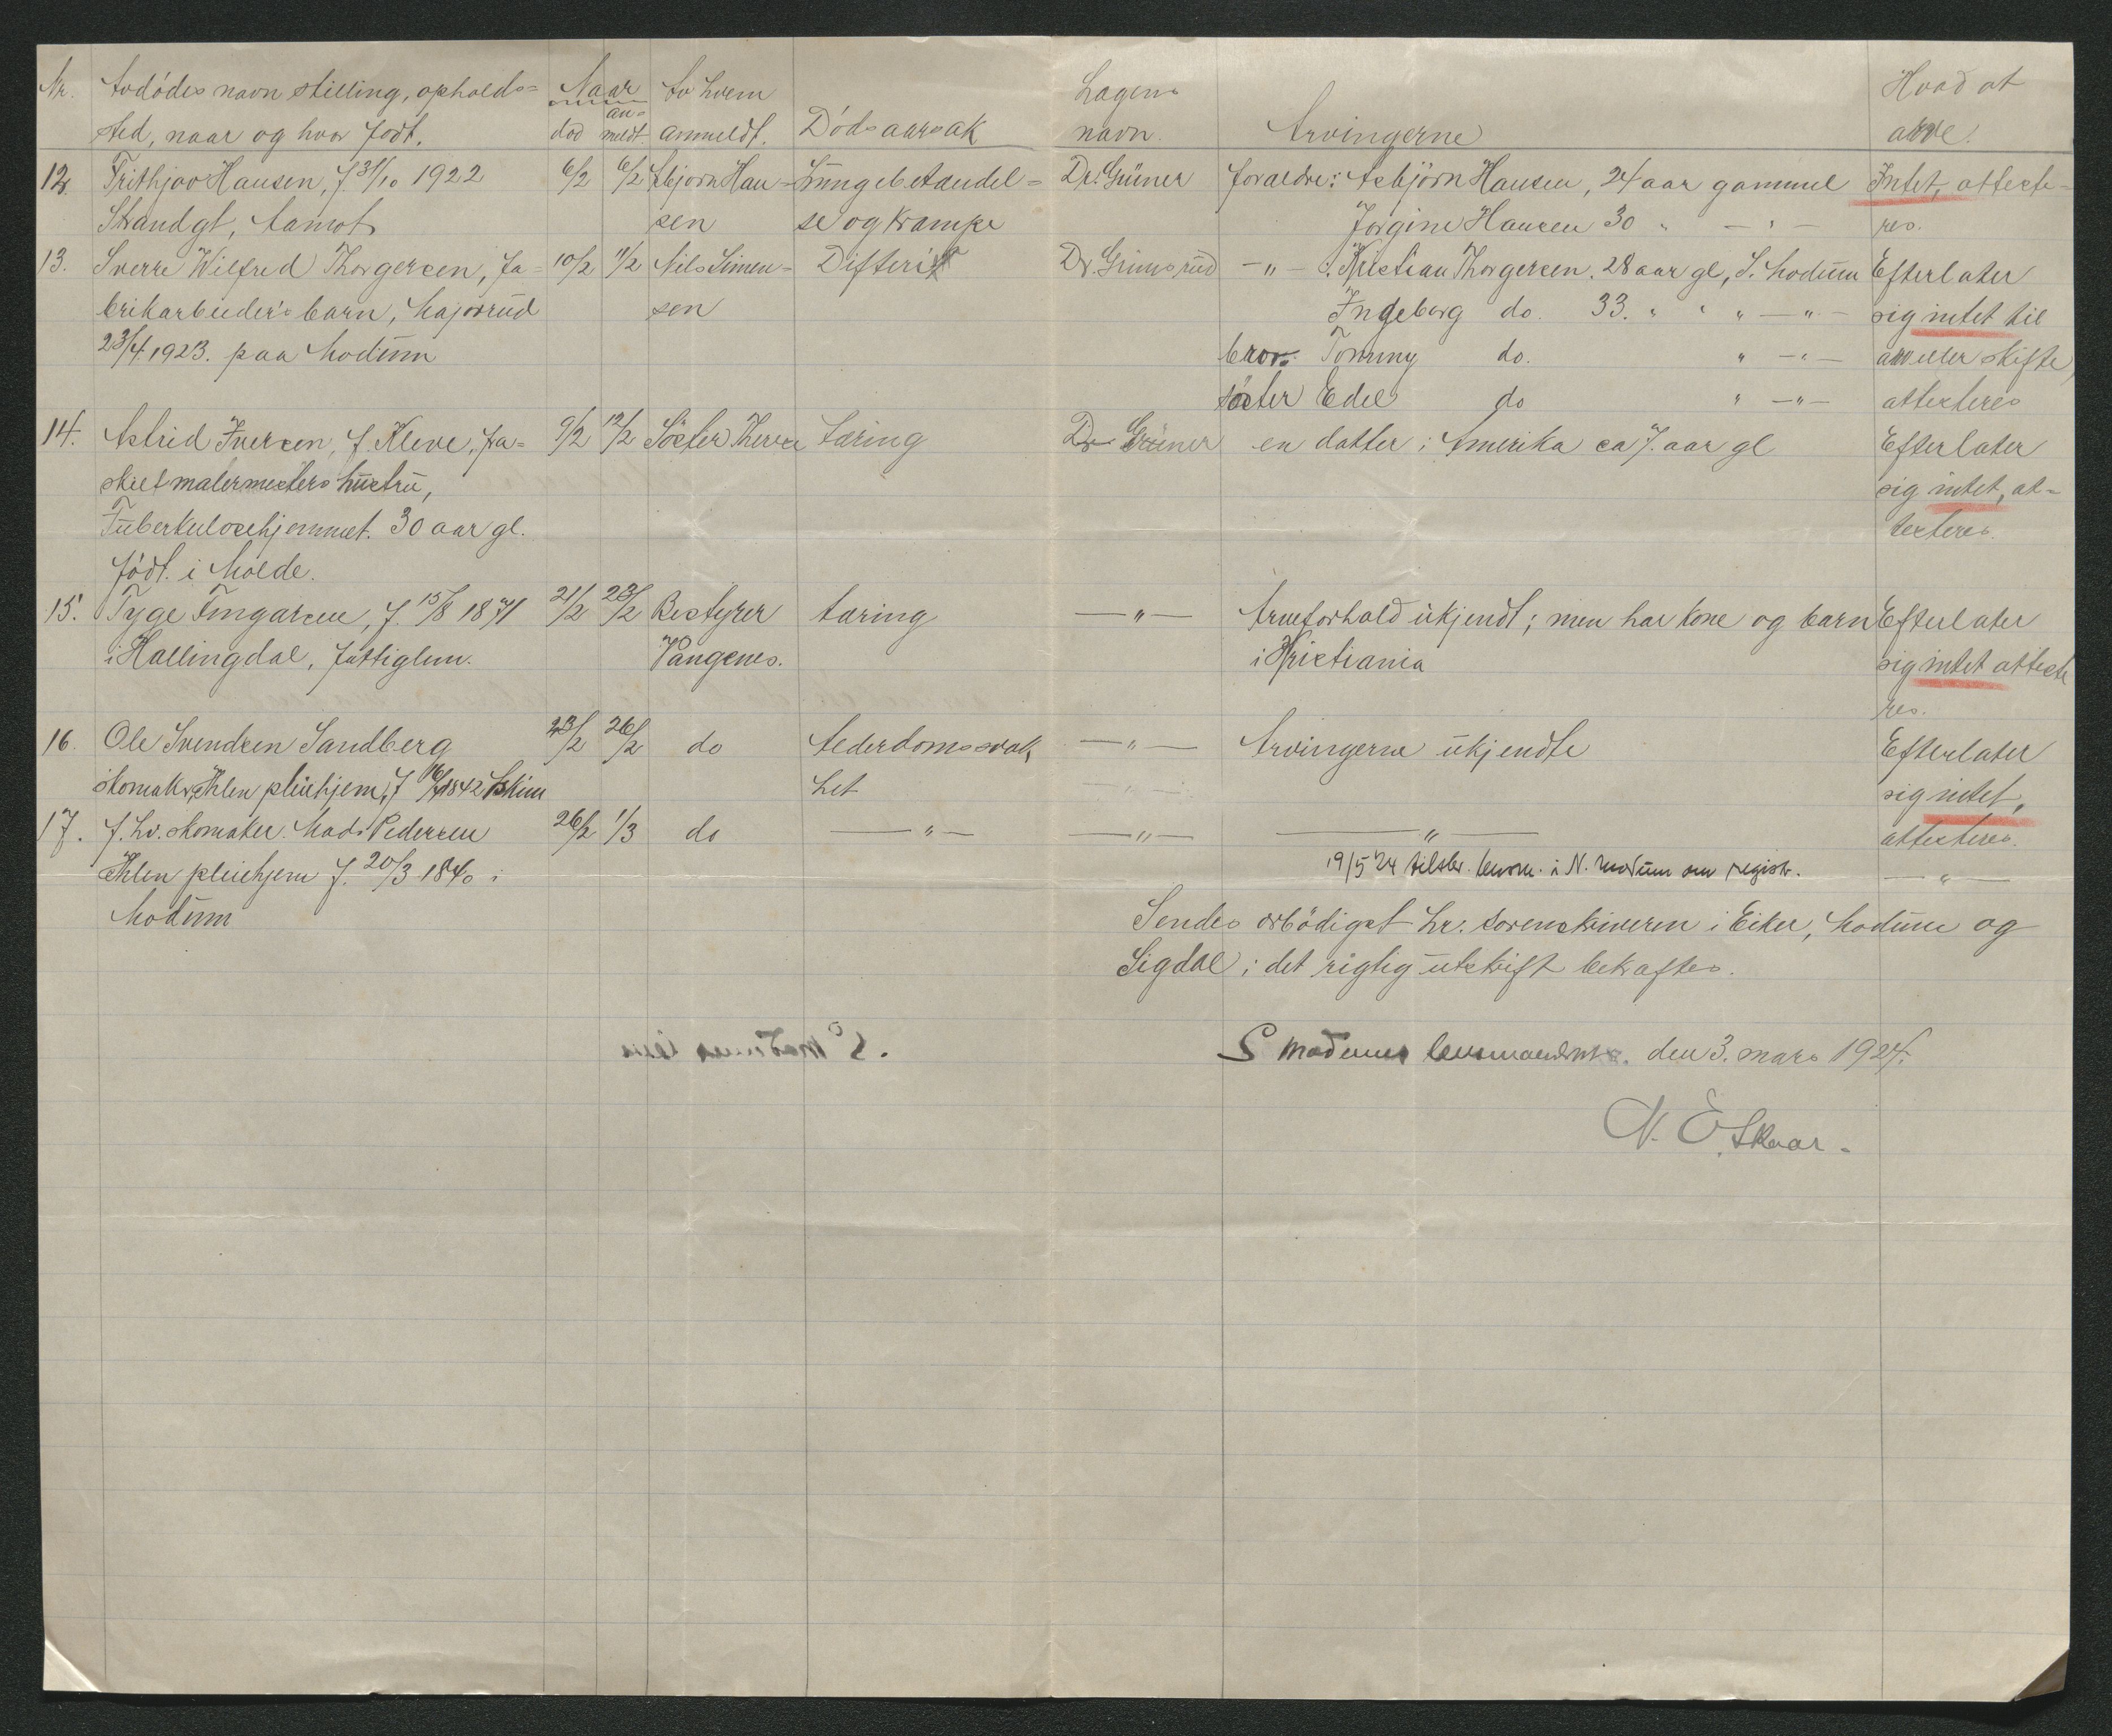 Nr. Avdödes navn stilling, opholds= Naar Av hvem Lægens Hvad at
sted, naar og hvor födt. död an=meldt. anmeldt. Dödsaarsak navn. Arvingerne arve.
12. Frithjov Hansen, f 31/10 1922 6/2 6/2 Asbjørn Han= Lungebetændel= Dr. Grüner forældre: Asbjörn Hansen, 24 aar gammel Intet, atteste=
Strandgt, Aamot sen se og krampe Jørgine Hansen 30 " — " — res.
13. Sverre Wilfred Thorgersen, fa= 10/2 11/2 Nils Simen= Difterit Dr. Grimsrud — " — : Kristian Thorgersen. 28 aar gl, S. Modum Efterlater
brikarbeider's barn, Kajorrud sen Ingeborg do. 33. " " " — " — sig intet til
23/4 1923. paa Modum bror: Tommy do. " — " — arv eller skifte,
söster Edel do " — " — attesteres
14. Astrid Iversen, f. Kleve, fra= 9/2 12/2 Söster Therese tæring Dr. Grüner en datter i Amerika ca 7. aar gl Efterlater
skilt malermesters hustru, sig intet, at=
Tuberkulosehjemmet. 30 aar gl. testeres.
födt. i Molde.
15. Tyge Tingarsen, f. 15/8 1871 21/2 23/2 Bestyrer tæring — " — Arveforhold ukjendt; men har kone og barn Efterlater
i Hallingdal, fattiglem. Vangenes. i Kristiania sig intet atteste
res.
16. Ole Svendsen Sandberg 23/2 26/2 do Alderdomssvak — " — Arvingerne ukjendte Efterlater
skomaker, Ihlen pleiehjem, f 16/4 1842 Askim het sig intet,
attesteres.
17. f. hv. skomaker Mads Pedersen 26/2 1/3 do — " — — " — — " —
Ihlen pleiehjem f. 20/3 1840 i 19/5 24 tilskr. lensm. i N. Modum om registr. — " —
Modum
Sendes ærbödigst hr. sorenskriveren i Eiker, Modum og
Sigdal i det rigtig utskrift bekræftes.
S Modums lensmandsk. den 3. mars 1924.
N. E. Skaar.